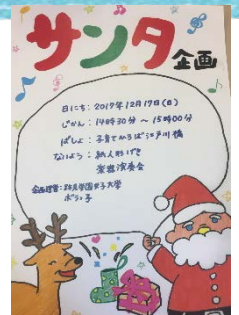 サンタ企画
日にち：2017年12月17日(日)
じかん：14時30分 〜 15時00分
ばしょ：子育てひろば江戸川橋
ないよう：紙人形げき
楽器演奏会
企画運営：跡見学園女子大学
ボラっ子